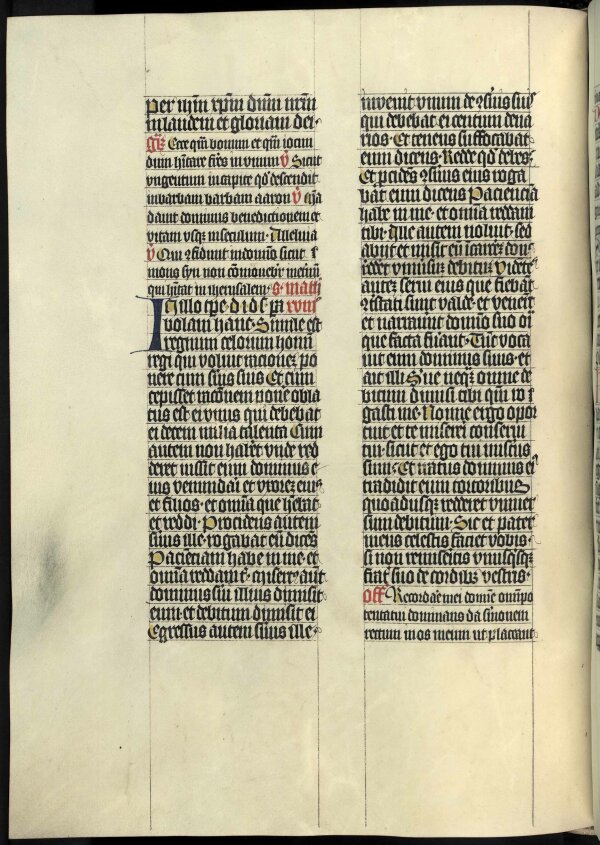 per ihm xpm dnm nrm
in laudem et gloriam dei·
Gr Ecce qm bonum et qm iocun
dum hitare fres in unum v̄ Sicut
ungentum in capite qd descendit
in barbam barbam aaron v̄
davit dominus benedictionem et
vitam usq in seculum· Alleluia
v̄ Qui confidunt in domino sicut
mons syon non comovebit in eternu
qui hitat in iherusalem· s· math
In illo tpe· d· ihs pa xviii
bolam hanc· Simile est
regnum celorum homini
regi qui voluit racionez po
nere cum suis suis Et cum
cepisset racionem ponere obla
tus est ei unus qui debebat
ei decem milia talenta Cum
autem non haberet unde red
deret iussit eum dominus e
ius venumdari et uxorez eius
et filios· et omnia que habebat
et reddi· Procidens autem
servus ille· rogabat eum dicens
Pacienciam habe in me· et
omnia reddam t· Misertus aut
dominus servi illius dimisit
eum· et debitum dimisit ei
Egressus autem servus ille·
invenit unum de conservis suis
qui debebat ei centum dena
rios· Et tenens suffocabat
eum dicens· Redde qd debes·
Et procidens conservus eius roga
bat eum dicens Pacienciam
habe in me· et omnia reddam
tibi· Ille autem noluit· sed
abiit et misit eum in carcerem don·
redderet universum debitum Videntes
autez servi eius que fiebant
contristati sunt valde· et venerunt
et narraverunt domino suo omnia
que facta fuerant· Tunc voca
vit eum dominus suus· et
ait illi· Serve nequam· omne de
bitum dimisi tibi qm ro
gasti me· Nonne ergo opor
tuit et te misereri conservi
tui· sicut et ego tui misertus
sum· Et iratus dominus eius
tradidit eum tortoribus
quoadusque redderet univer
sum debitum· Sic et pater
meus celestis faciet vobis·
si non remiseritis unusquisque
fratri suo de cordibus vestris·
off Recordare mei domine omnipo
tentatui dominans da sermonem
rectum in os meum ut placeant